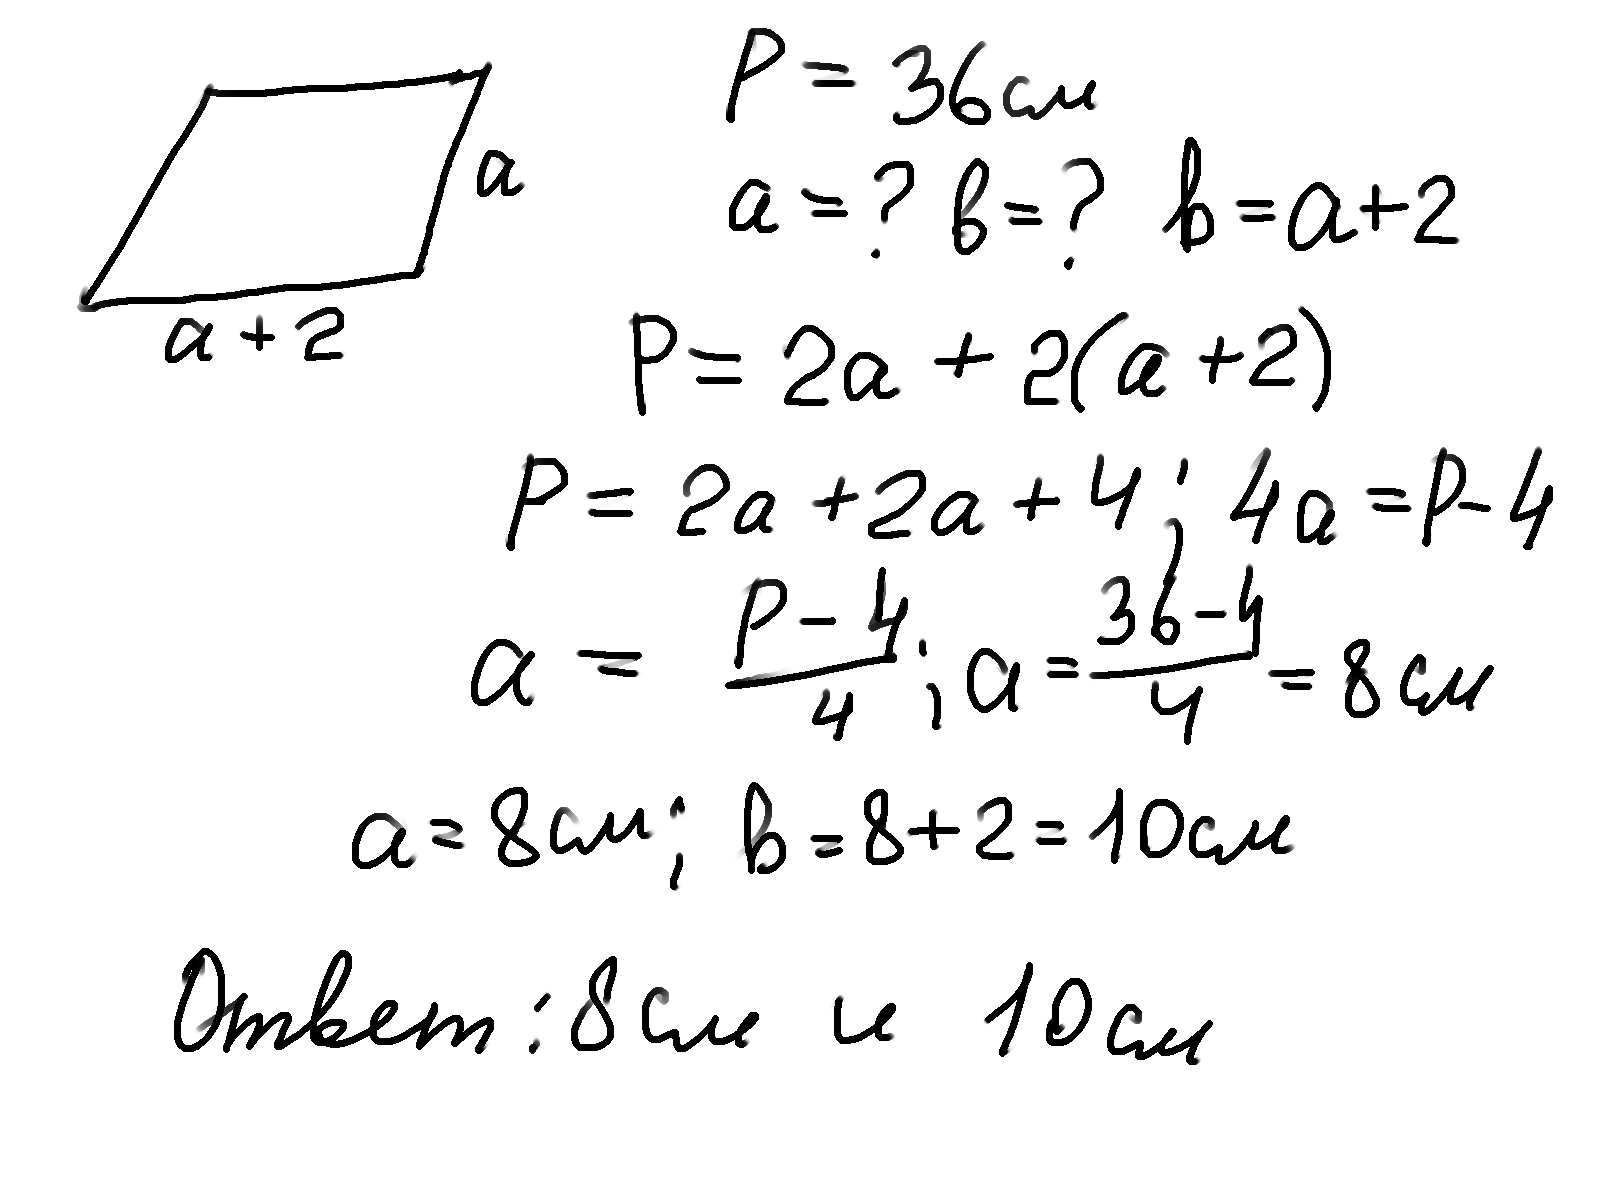 P = 36см
a
a = ? в = ? в = a + 2
a + 2
P = 2a + 2(a + 2)
P = 2a + 2a + 4 ; 4a = P - 4
a = (P - 4)/4 ; a = (36 - 4)/4 = 8см
a = 8см ; в = 8 + 2 = 10см
Ответ : 8см и 10см